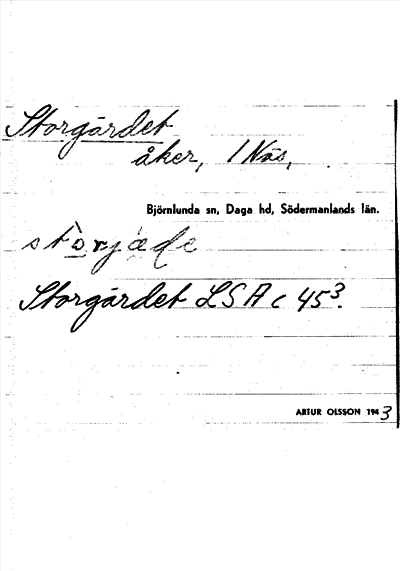 Storgärdet
åker, 1 Näs,
Björnlunda sn, Daga hd, Södermanlands län.
stòrjæde
Storgärdet LSA c 45³.
ARTUR OLSSON 1943